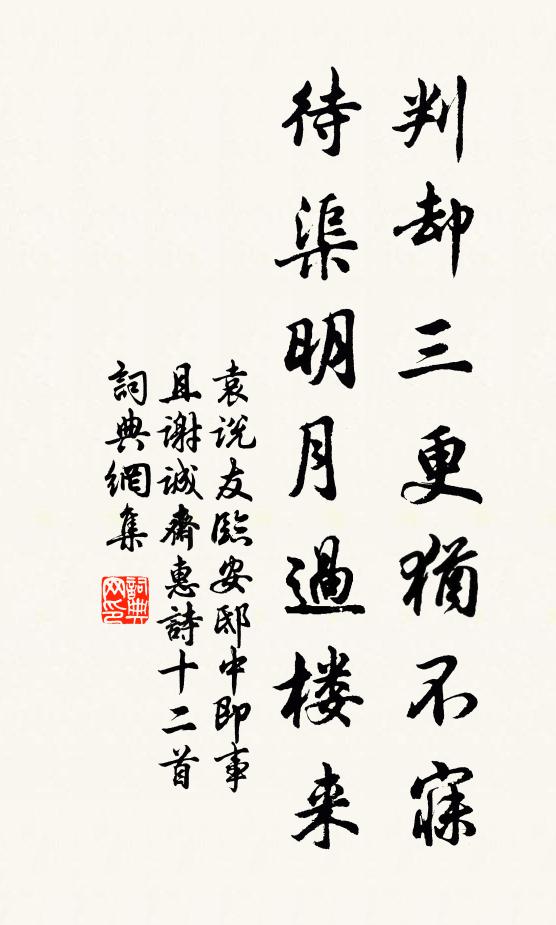 判却三更犹不寐
待渠明月過楼来
袁说友臨安邸中即事
且谢诚齋惠詩十二首
詞典網集
詞典网印